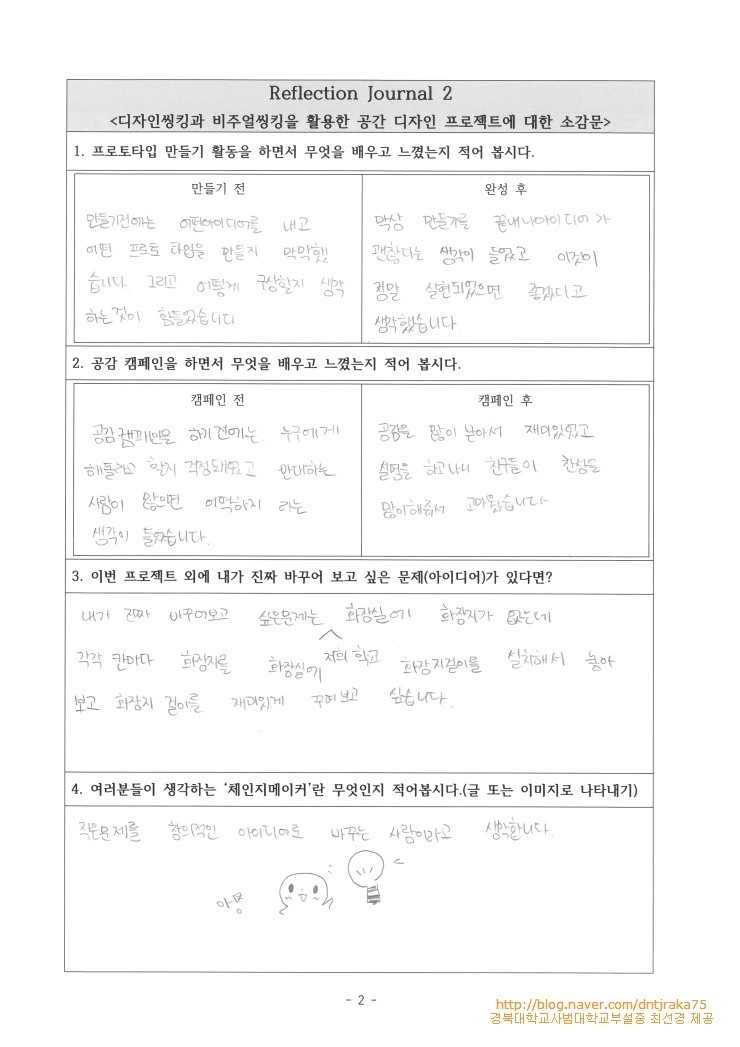 Reflection Journal 2
<디자인씽킹과 비주얼씽킹을 활용한 공간 디자인 프로젝트에 대한 소감문>
1. 프로토타입 만들기 활동을 하면서 무엇을 배우고 느꼈는지 적어 봅시다.
만들기 전
만들기전에는 어떤아이디어를 내고
어떤 프로토 타입을 만들지 막막했
습니다. 그리고 어떻게 구상할지 생각
하는것이 힘들었습니다
완성 후
막상 만들기를 끝내니아이디어가
괜찮다는 생각이 들었고 이것이
정말 실현되었으면 좋겠다고
생각했습니다
2. 공감 캠페인을 하면서 무엇을 배우고 느꼈는지 적어 봅시다.
캠페인 전
공감캠페인을 하기전에는 누구에게
해달라고 할지 걱정돼었고 반대하는
사람이 많으면 어떡하지 라는
생각이 들었습니다.
캠페인 후
공감을 많이 받아서 재미있었고
설명을 하고나니 친구들이 찬성을
많이해줘서 고마웠습니다
3. 이번 프로젝트 외에 내가 진짜 바꾸어 보고 싶은 문제(아이디어)가 있다면?
내가 진짜 바꾸어보고 싶은문제는 화장실에 화장지가 없는데
각각 칸마다 화장지를 화장실에 저희 학교 화장지걸이를 설치해서 놓아
보고 화장지 걸이를 재미있게 꾸며보고 싶습니다.
4. 여러분들이 생각하는 ‘체인지메이커’란 무엇인지 적어봅시다.(글 또는 이미지로 나타내기)
작은문제를 창의적인 아이디어로 바꾸는 사람이라고 생각합니다.
- 2 -
http://blog.naver.com/dntjraka75
경북대학교사범대학교부설중 최선경 제공